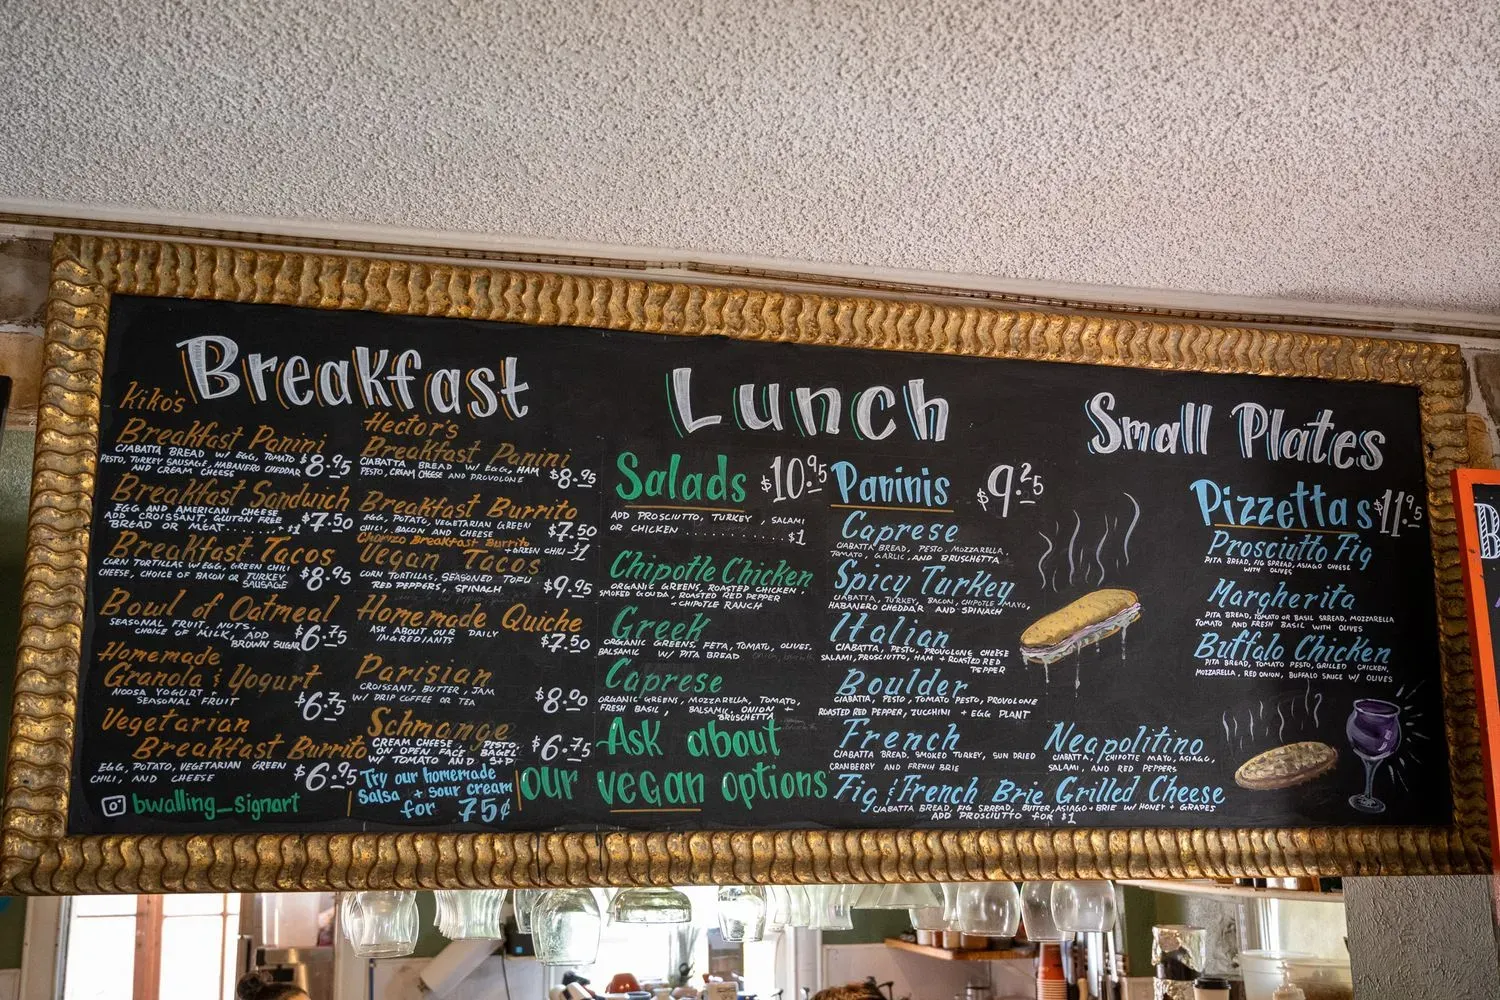 Breakfast
Kiko's
Breakfast Panini
CIABATTA BREAD W/ EGG, TOMATO
PESTO, TURKEY SAUSAGE, HABANERO CHEDDAR
AND CREAM CHEESE
$8.95
Breakfast Sandwich
EGG AND AMERICAN CHEESE
ADD CROISSANT, GLUTEN FREE
BREAD OR MEAT........$1
$7.50
Breakfast Tacos
CORN TORTILLAS W/ EGG, GREEN CHILI
CHEESE, CHOICE OF BACON OR TURKEY
SAUSAGE
$8.95
Bowl of Oatmeal
SEASONAL FRUIT, NUTS,
CHOICE OF MILK, ADD
BROWN SUGAR
$6.75
Homemade
Granola & Yogurt
NOOSA YOGURT +
SEASONAL FRUIT
$6.75
Vegetarian
Breakfast Burrito
EGG, POTATO, VEGETARIAN GREEN
CHILI, AND CHEESE
$6.95
bwalling_signart
Hector's
Breakfast Panini
CIABATTA BREAD W/ EGG, HAM
PESTO, CREAM CHEESE AND PROVOLONE
$8.95
Breakfast Burrito
EGG, POTATO, VEGETARIAN GREEN
CHILI, BACON AND CHEESE
$7.50
Chorizo Breakfast Burrito
+ GREEN CHILI $1
Vegan Tacos
CORN TORTILLAS, SEASONED TOFU,
RED PEPPERS, SPINACH
$9.95
Homemade Quiche
ASK ABOUT OUR DAILY
INGREDIANTS
$7.50
Parisian
CROISSANT, BUTTER, JAM
W/ DRIP COFFEE OR TEA
$8.00
Schmange
CREAM CHEESE, PESTO,
ON OPEN FACE BAGEL
W/ TOMATO AND S+P
$6.75
Try our homemade
Salsa + sour cream
for 75¢
Lunch
Salads $10.95
ADD PROSCIUTTO, TURKEY, SALAMI
OR CHICKEN..........$1
Chipotle Chicken
ORGANIC GREENS, ROASTED CHICKEN,
SMOKED GOUDA, ROASTED RED PEPPER
+ CHIPOTLE RANCH
Greek
ORGANIC GREENS, FETA, TOMATO, OLIVES,
BALSAMIC W/ PITA BREAD
Caprese
ORGANIC GREENS, MOZZARELLA, TOMATO,
FRESH BASIL, BALSAMIC, ONION +
BRUSCHETTA
Ask about
our vegan options
Paninis $9.25
Caprese
CIABATTA BREAD, PESTO, MOZZARELLA,
TOMATO, GARLIC, AND BRUSCHETTA
Spicy Turkey
CIABATTA, TURKEY, BACON, CHIPOTLE MAYO,
HABANERO CHEDDAR AND SPINACH
Italian
CIABATTA, PESTO, PROVOLONE CHEESE
SALAMI, PROSCIUTTO, HAM + ROASTED RED
PEPPER
Boulder
CIABATTA, PESTO, TOMATO PESTO, PROVOLONE
ROASTED RED PEPPER, ZUCCHINI + EGG PLANT
French
CIABATTA BREAD, SMOKED TURKEY, SUN DRIED
CRANBERRY AND FRENCH BRIE
Neapolitino
CIABATTA, CHIPOTLE MAYO, ASIAGO,
SALAMI, AND RED PEPPERS
Fig & French Brie Grilled Cheese
CIABATTA BREAD, FIG SPREAD, BUTTER, ASIAGO + BRIE W/ HONEY + GRAPES
ADD PROSCIUTTO FOR $1
Small Plates
Pizzettas $11.95
Prosciutto Fig
PITA BREAD, FIG SPREAD, ASIAGO CHEESE
WITH OLIVES
Margherita
PITA BREAD, TOMATO OR BASIL SPREAD, MOZZARELLA
TOMATO AND FRESH BASIL WITH OLIVES
Buffalo Chicken
PITA BREAD, TOMATO PESTO, GRILLED CHICKEN,
MOZZARELLA, RED ONION, BUFFALO SAUCE W/ OLIVES